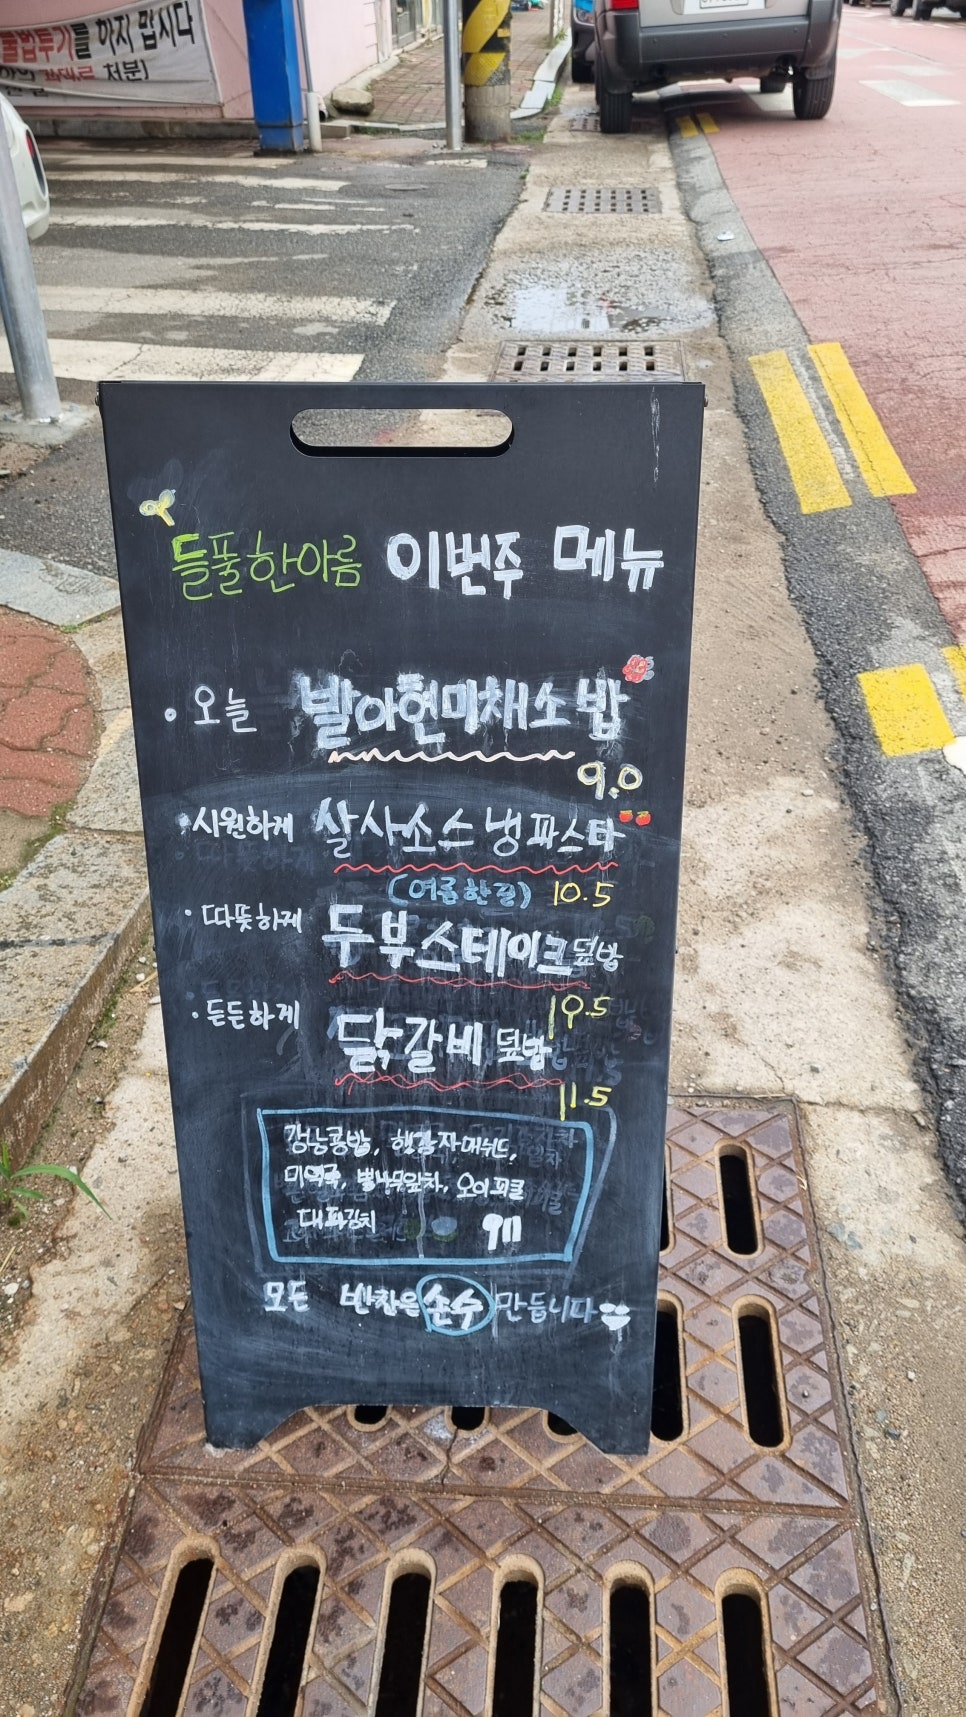 불법투기를 하지 맙시다
처분)
들풀한아름 이번주 메뉴
• 오늘 발아현미채소밥
9.0
• 시원하게 살사소스냉파스타
(여름한정) 10.5
• 따뜻하게 두부스테이크덮밥
10.5
• 든든하게 닭갈비덮밥
11.5
강낭콩밥, 햇감자매쉬드,
미역국, 뽕나무잎차, 오이피클
대파김치
모든 반찬은 손수 만듭니다